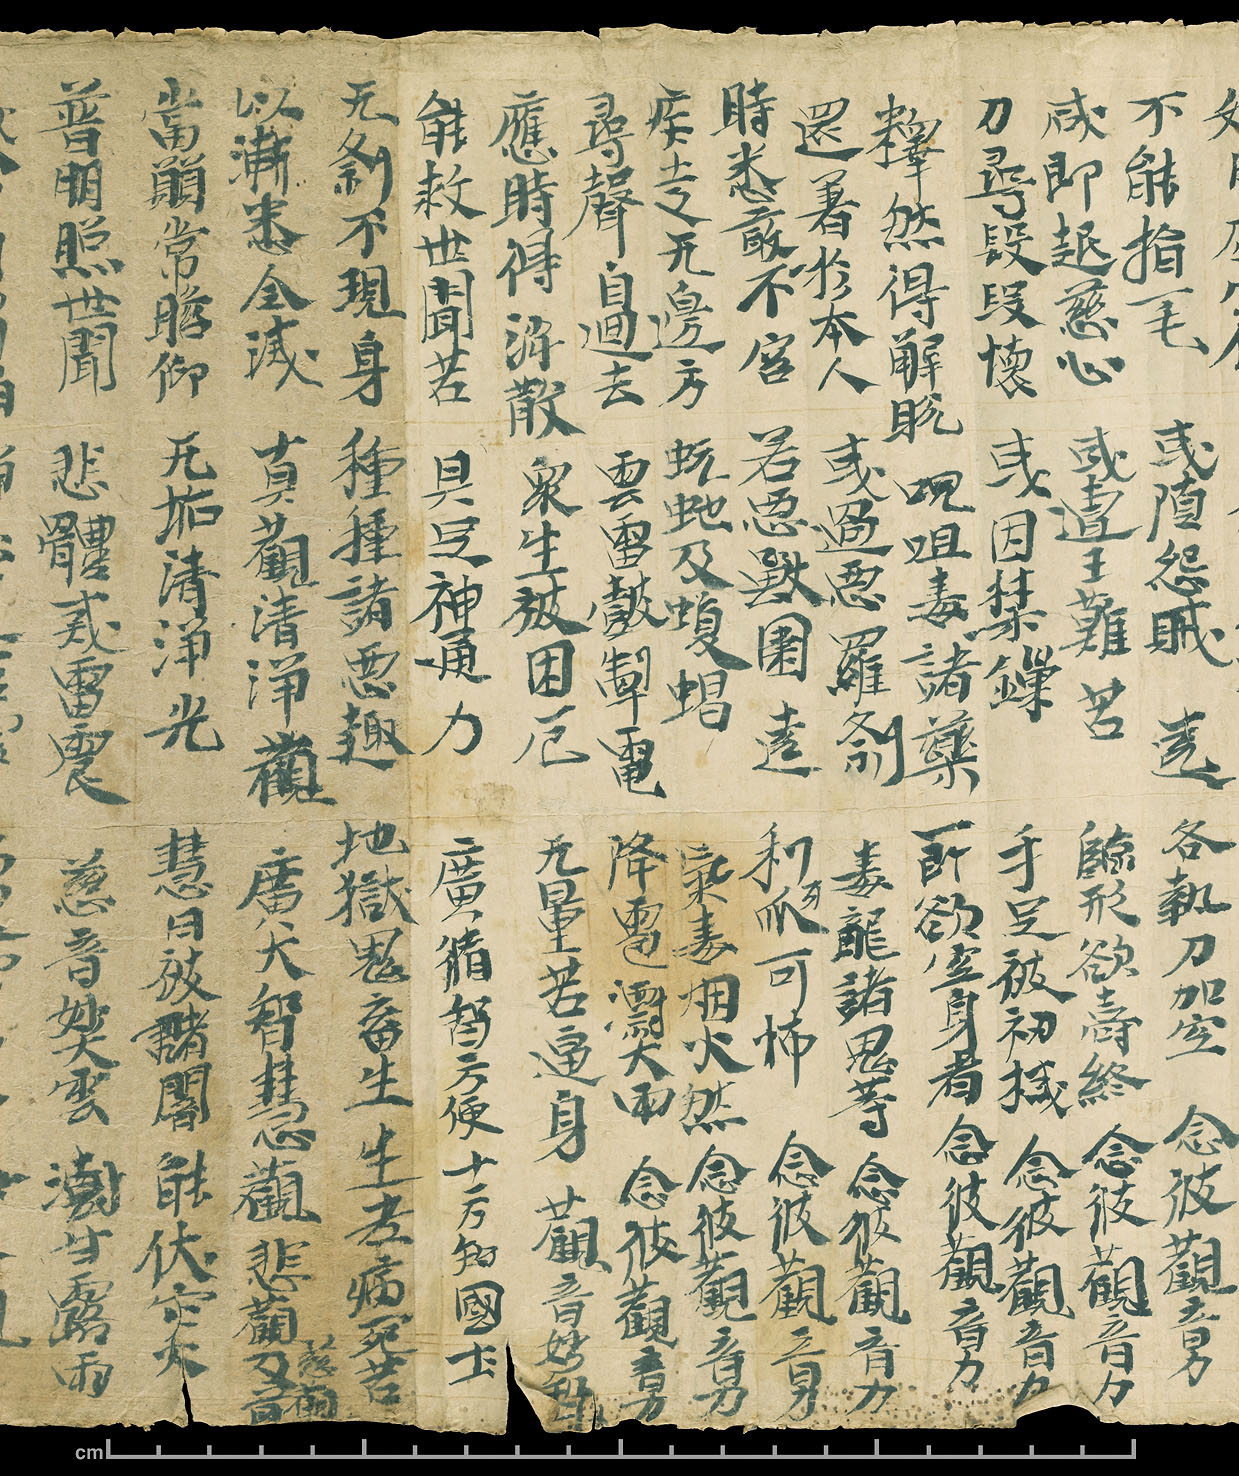 不能指一毛 或值怨賊遶 各執刀加空 念彼觀音力
咸即起慈心 或遭王難苦 臨形欲壽終 念彼觀音力
刀尋段段懷 或因禁鏁 手足被初械 念彼觀音力
釋然得解脫 呪咀毒諸藥 所欲空身者 念彼觀音力
還著於本人 或遇惡羅剎 毒龍諸鬼等 念彼觀音力
時悉敢不害 若惡獸圍遶 利牙爪可怖 念彼觀音力
疾走无邊方 蚖蛇及蝮蝎 氣毒烟火然 念彼觀音力
尋聲自迴去 雲雷鼓掣電 降雹澍大雨 念彼觀音力
應時得消散 眾生被困厄 无量苦逼身 觀音妙智
能救世間苦 具足神通力 廣脩智方便 十方知國土
无剎不現身 種種諸惡趣 地獄鬼畜生 生老病死苦
以漸悉令滅 真觀清淨觀 廣大智慧觀 悲觀及慈觀
當願常瞻仰 无垢清淨光 慧日破諸闇 能伏灾火
普明照世間 悲體戒雷震 慈音妙大雲 澍甘露雨